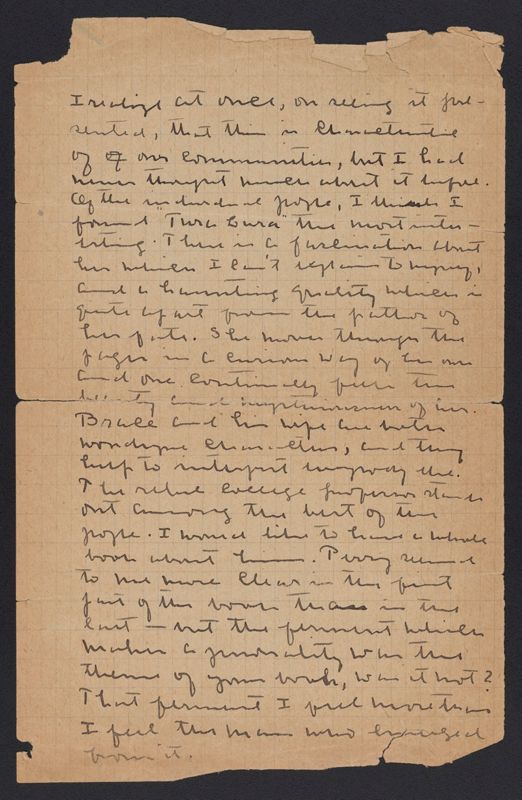 I realize at once, on seeing it pre-
sented, that this is characteristic
of our communities, but I had
never thought much about it before.
Of the individual people, I think I
found "Thea Cara" the most inter-
esting. There is a fascination about
her which I can't explain to myself,
and a haunting quality which is
quite apart from the pathos of
her fate. She moves through the
pages in a curious way of her own
and one continually feels the
beauty and mysteriousness of her.
Brace and his wife are both
characters, and they
help to interpret everybody else.
The college professor stands
out among the best of the
people. I would like to have a whole
book about him. Perry seemed
to me more clear in the first
part of the book than in the
last — but the ferment which
makes a personality was the
theme of your book, was it not?
That ferment I feel more than
I feel the man who emerged
from it.